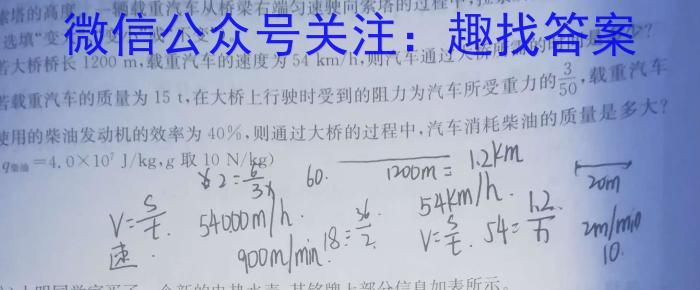 索塔的高度 一辆载重汽车从桥梁右端匀速驶向索塔的过程中,
选填"变
微信公众号关注：趣找答案
若大桥桥长 1200 m,载重汽车的速度为 54 km/h,则汽车通过大桥所需的时间是多少?
若载重汽车的质量为 15 t,在大桥上行驶时受到的阻力为汽车所受重力的3/50,载重汽车
使用的柴油发动机的效率为 40%,则通过大桥的过程中,汽车消耗柴油的质量是多大?
q柴油=4.0×10⁷ J/kg,g 取 10 N/kg)
60. 1200m = 1.2km
20m
V=S/t. 54000m/h. 54km/h.
速. 900m/min. 18=36/2 V=S/t. 54=1.2/ 2m/min
10.
一个新的电热水壶,其铭牌上部分信息如表所示。